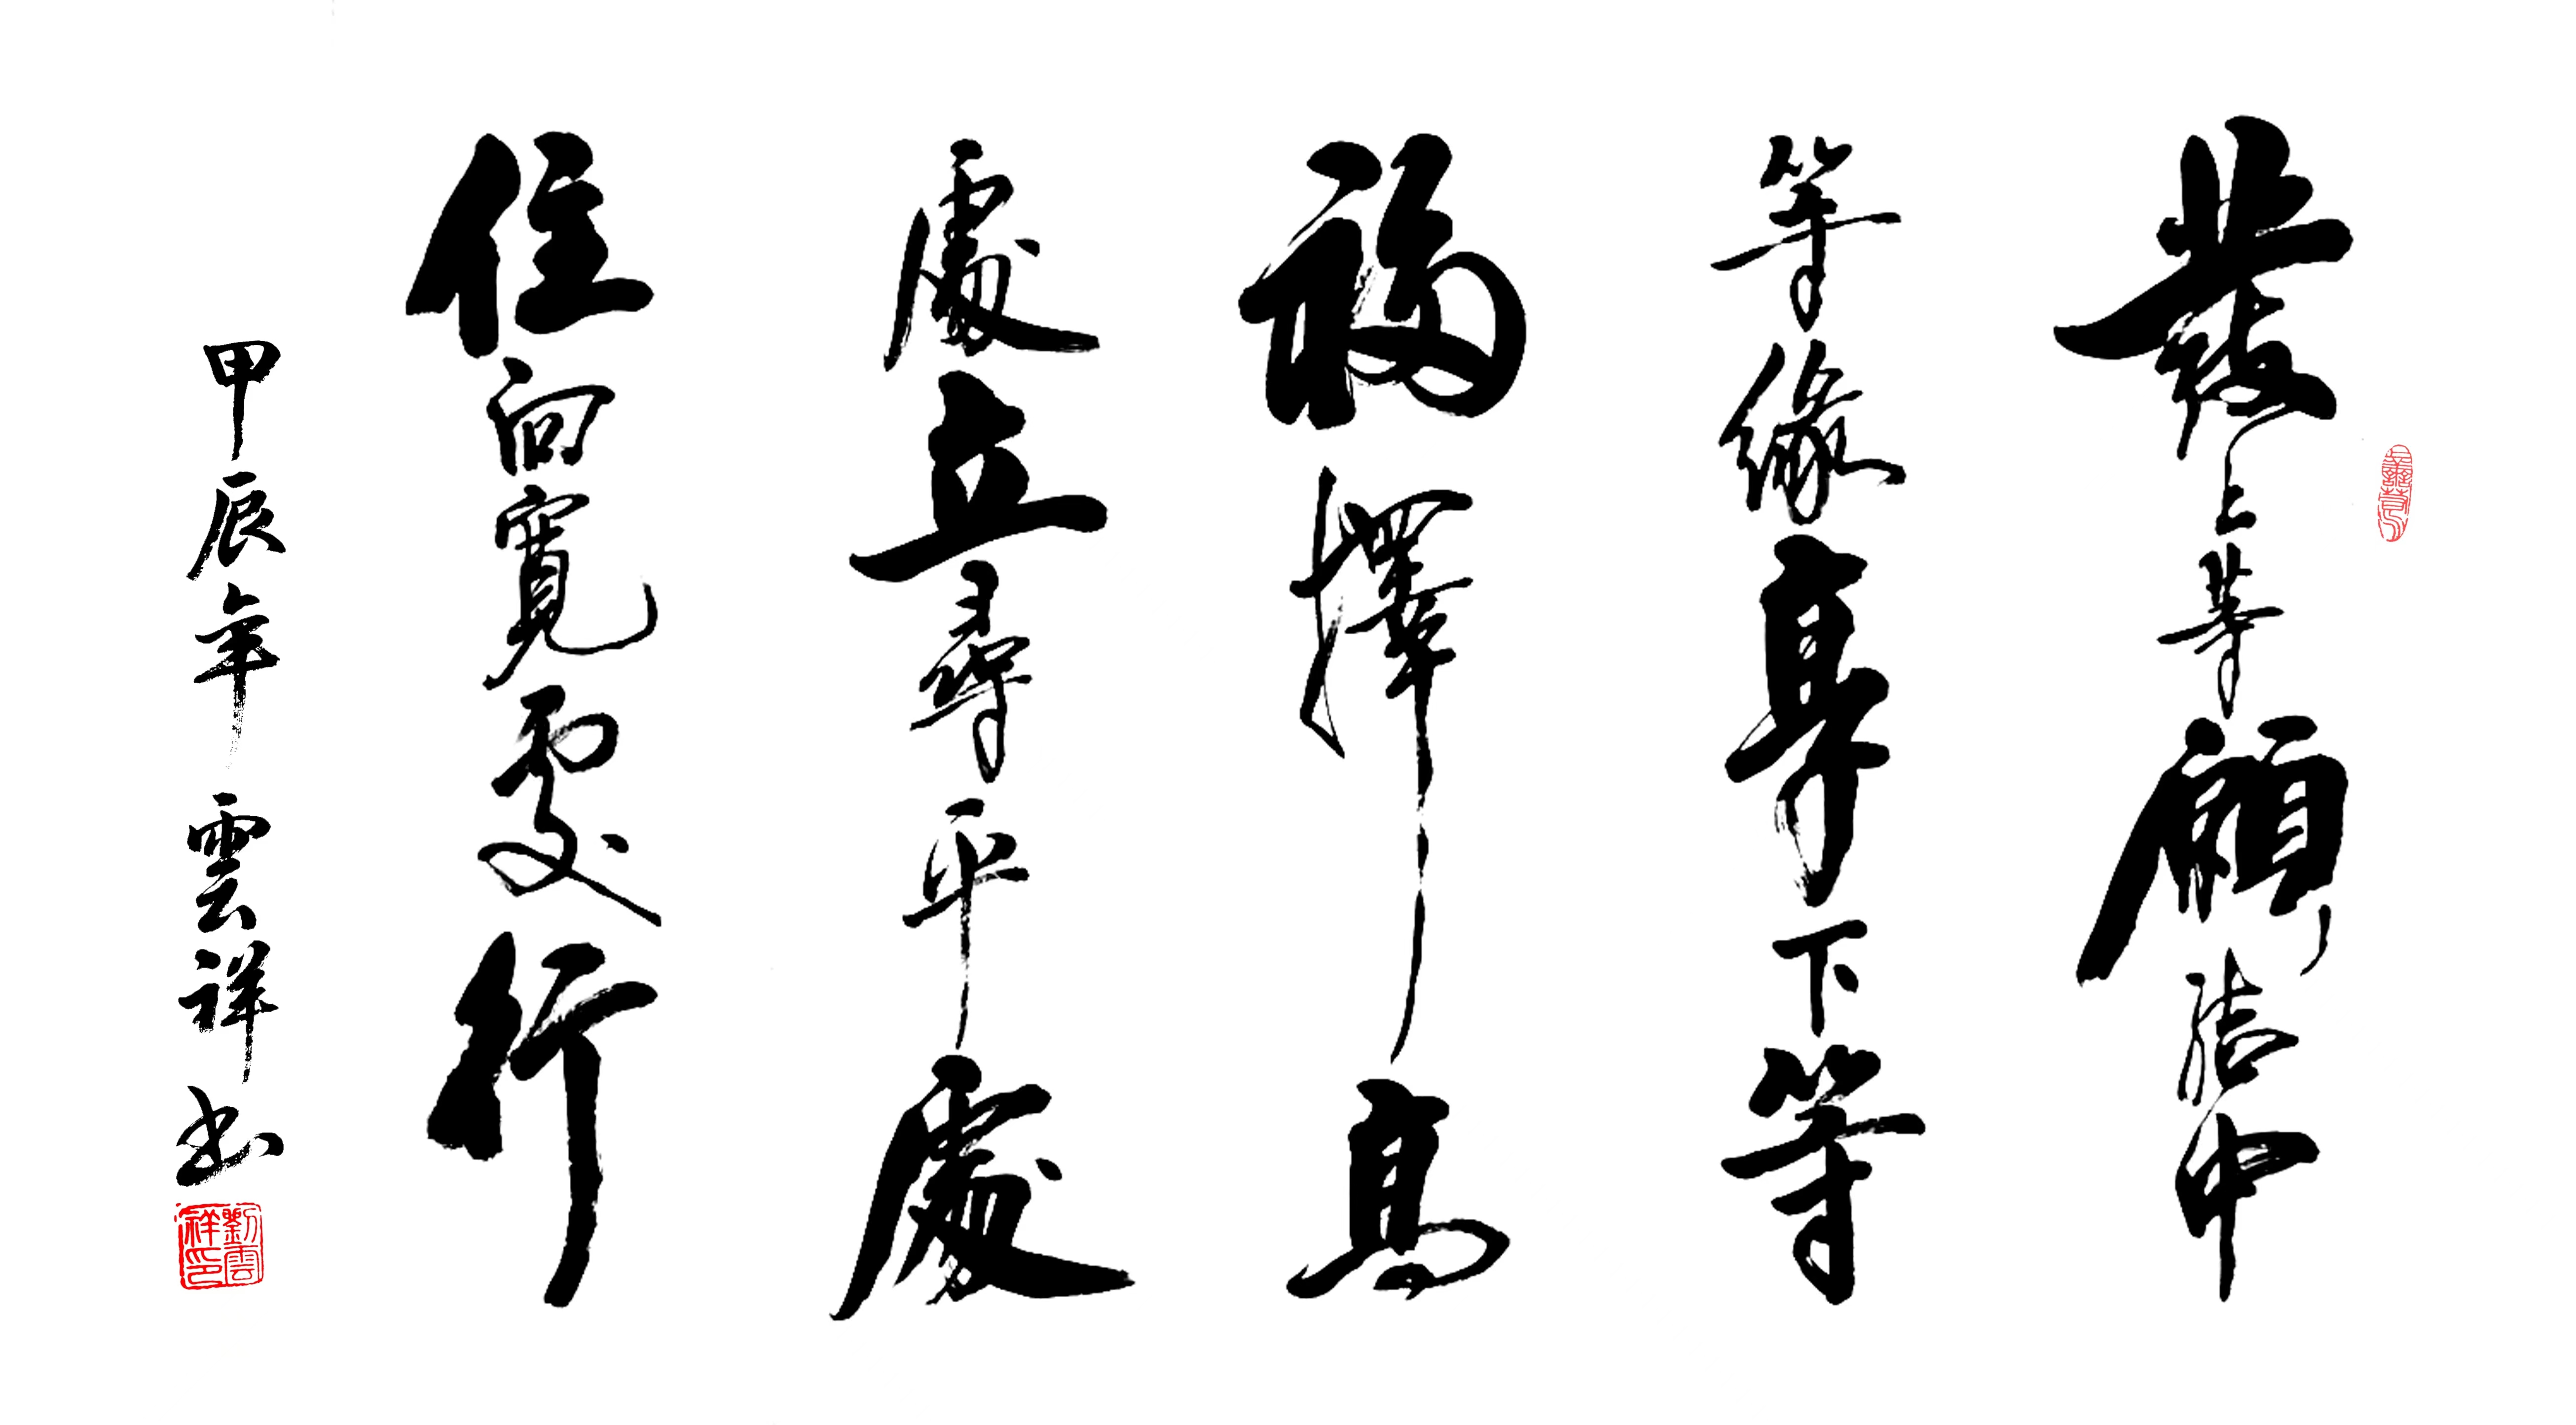 發上等願結中
等緣享下等
福擇高
處立尋平處
住向寬處行
甲辰年 雲祥书
劉雲祥印